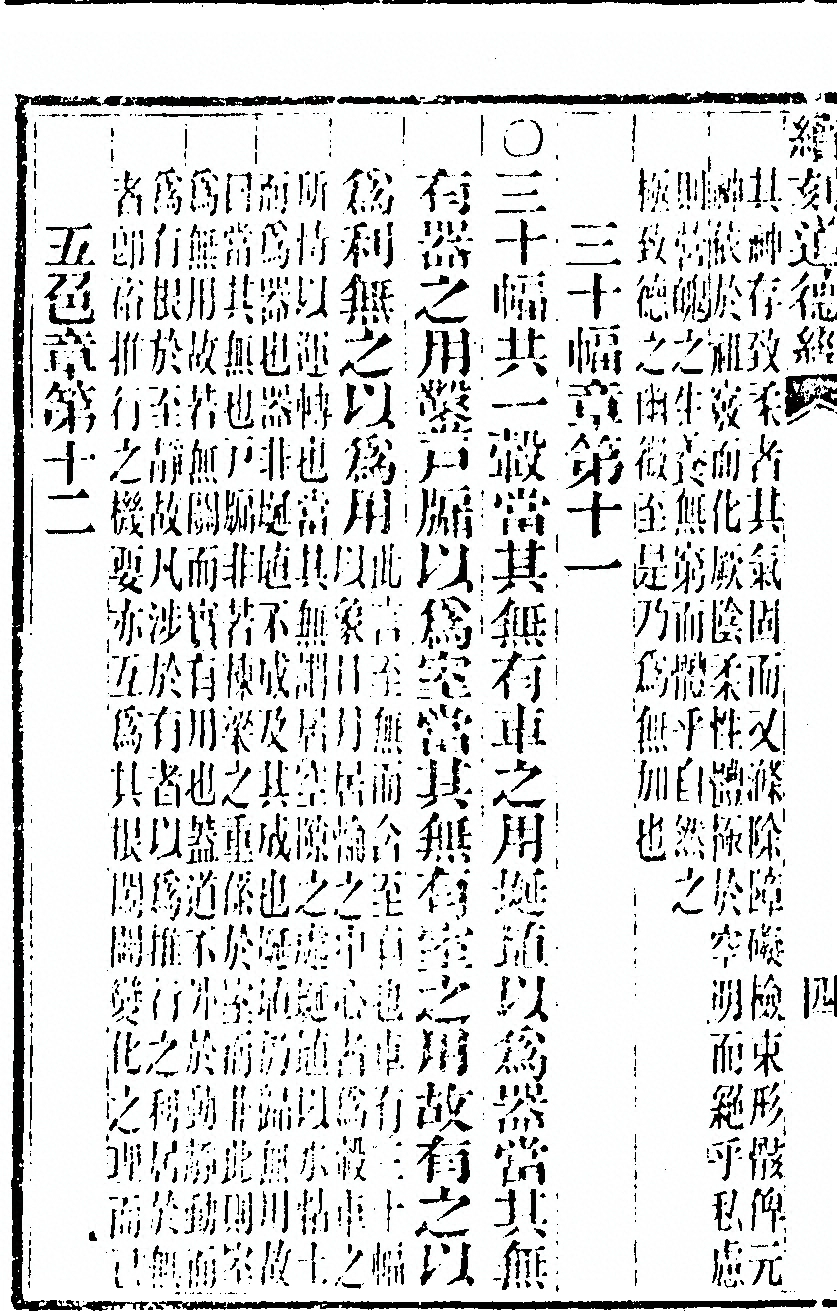 續刻道德經
四
其神存致柔者其氣固而又滌除障礙檢束形骸俾元
神依於祖竅而化厥陰柔性體極於空明而絕乎私慮
則營魄之生養無窮而體乎自然之
極致德之幽微至是乃為無加也
三十幅章第十一
〇三十幅共一轂當其無有車之用埏埴以為器當其無
有器之用鑿戶牖以為室當其無有室之用故有之以
為利無之以為用
此言至無而含至有也車有三十幅
以象日月居輪之中心者為轂車之
所恃以運轉也當其無謂居空隙之處埏埴以水粘土
而為器也器非埏埴不成及其成也埏埴仍歸無用故
曰當其無也戶牖非若棟梁之重係於室而非此則室
為無用故若無關而實有用也蓋道不外於動靜動而
為有根於至靜故凡涉於有者以為推行之利居於無
者即裕推行之機要亦互為其根闔闢變化之理而已
五色章第十二